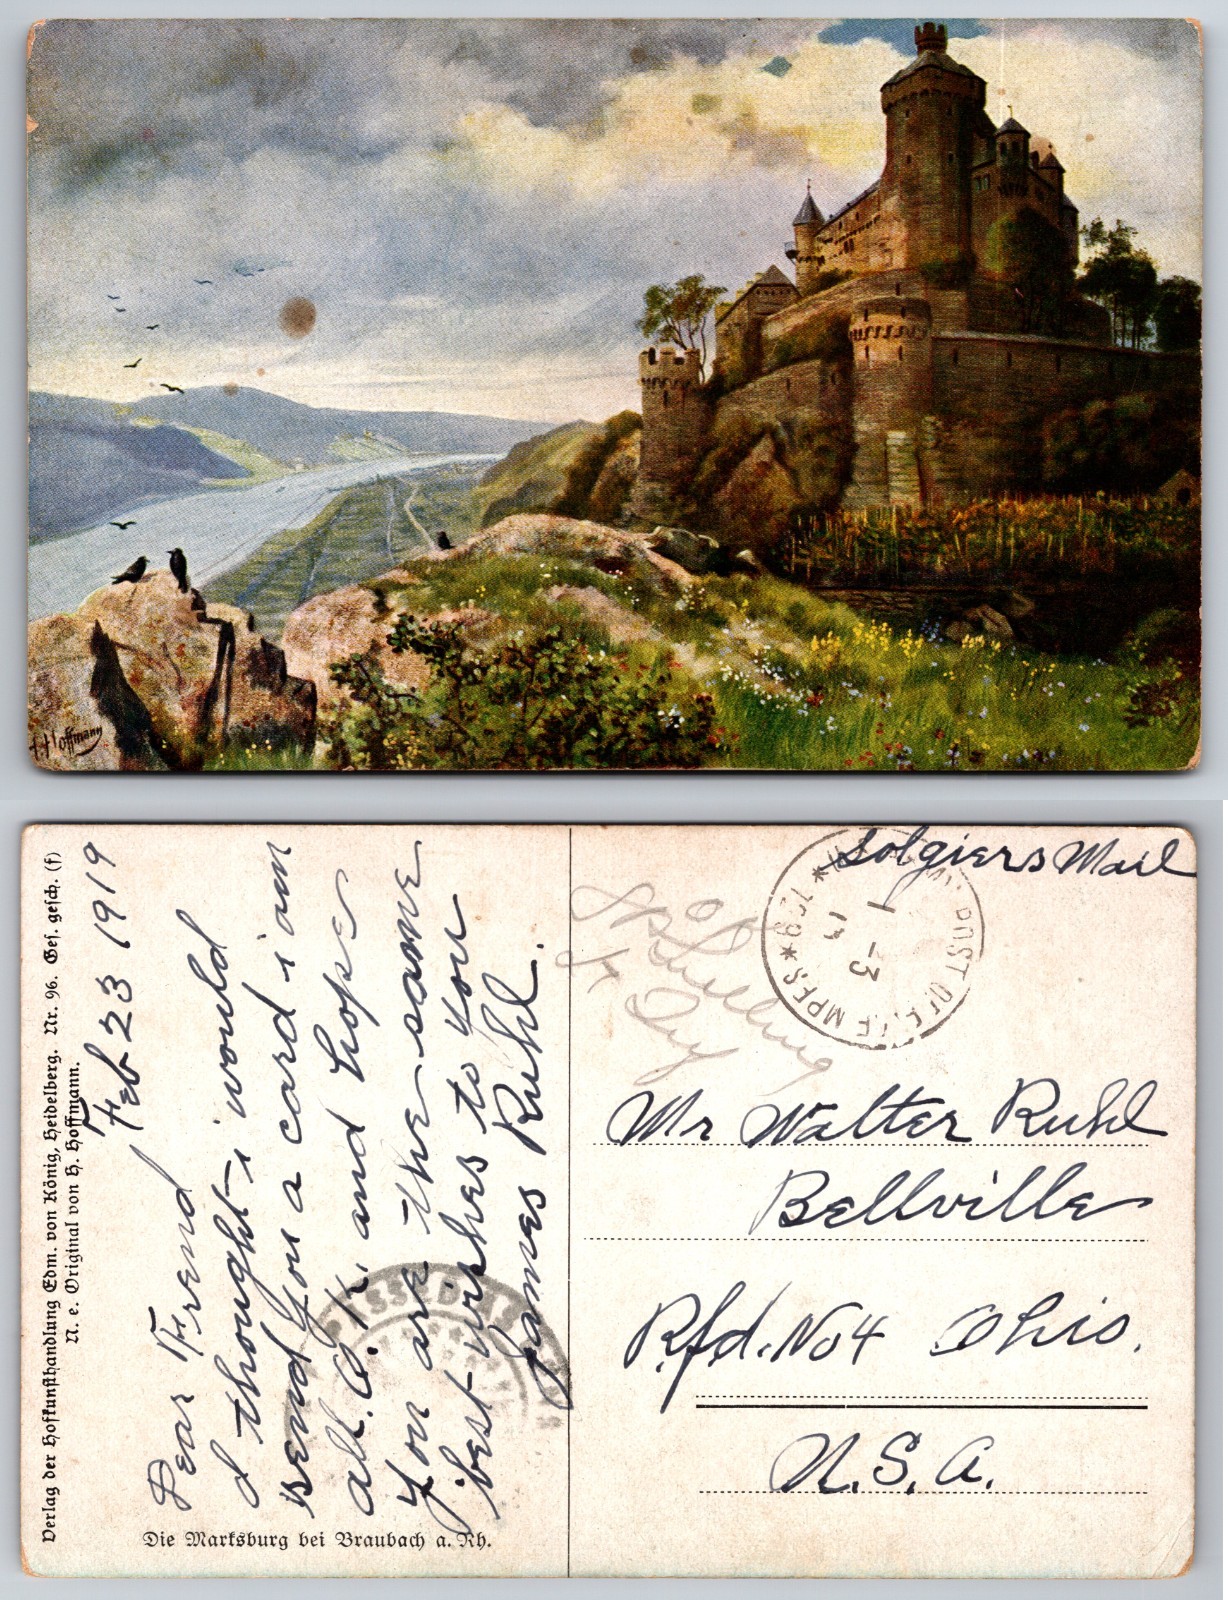 H. Hoffmann
Verlag der Hofkunsthandlung Edm. von König, Heidelberg. Nr. 96. Ges. gesch. (f)
N. e. Original von H. Hoffmann.
Feb 23 1919
Dear Frend
I thought i would
send you a card i am
all O.K. and hopes
you are the same
best wishes to you
James Ruhl.
Die Marksburg bei Braubach a. Rh.
PASSED AS
Solgiers Mail
POST OFFICE
MPES * 729 *
3
Mr Walter Ruhl
Bellville
Rfd. No 4 Ohio.
U.S.A.